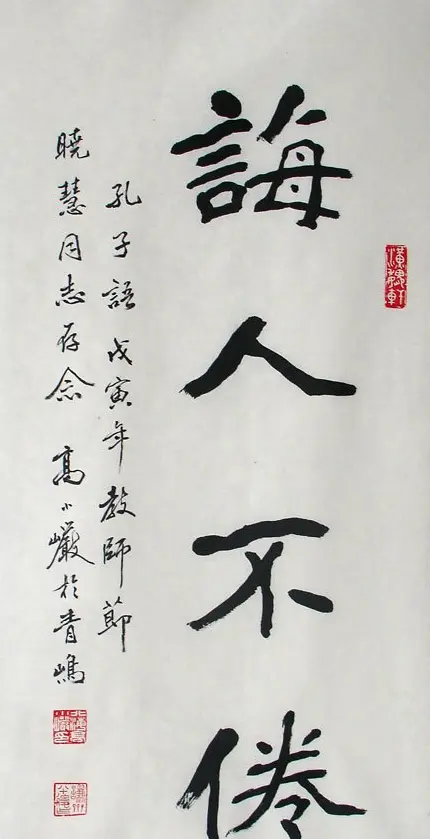 誨人不倦
孔子語 戊寅年教師節
曉慧同志存念 高小巖於青島